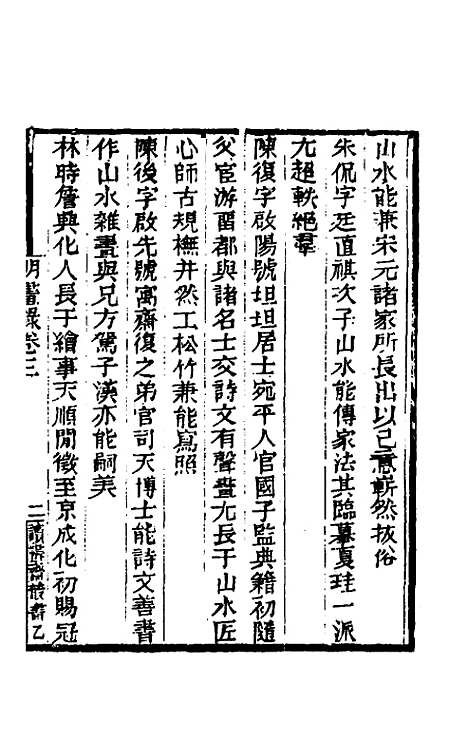 山水能兼宋元諸家所長出以己意嶄然拔俗
朱侃字廷直祺次子山水能傳家法其臨摹夏珪一派
尤超軼絕羣
陳復字啟陽號坦坦居士宛平人官國子監典籍初隨
父宦游留都與諸名士交詩文有聲畫尤長于山水匠
心師古規橅井然工松竹兼能寫照
陳後字啟先號寓齋復之弟官司天博士能詩文善書
作山水雜畫與兄方駕子漢亦能嗣美
林時詹興化人長于繪事天順閒徵至京成化初賜冠
明畫錄卷三
二
讀畫齋叢書乙